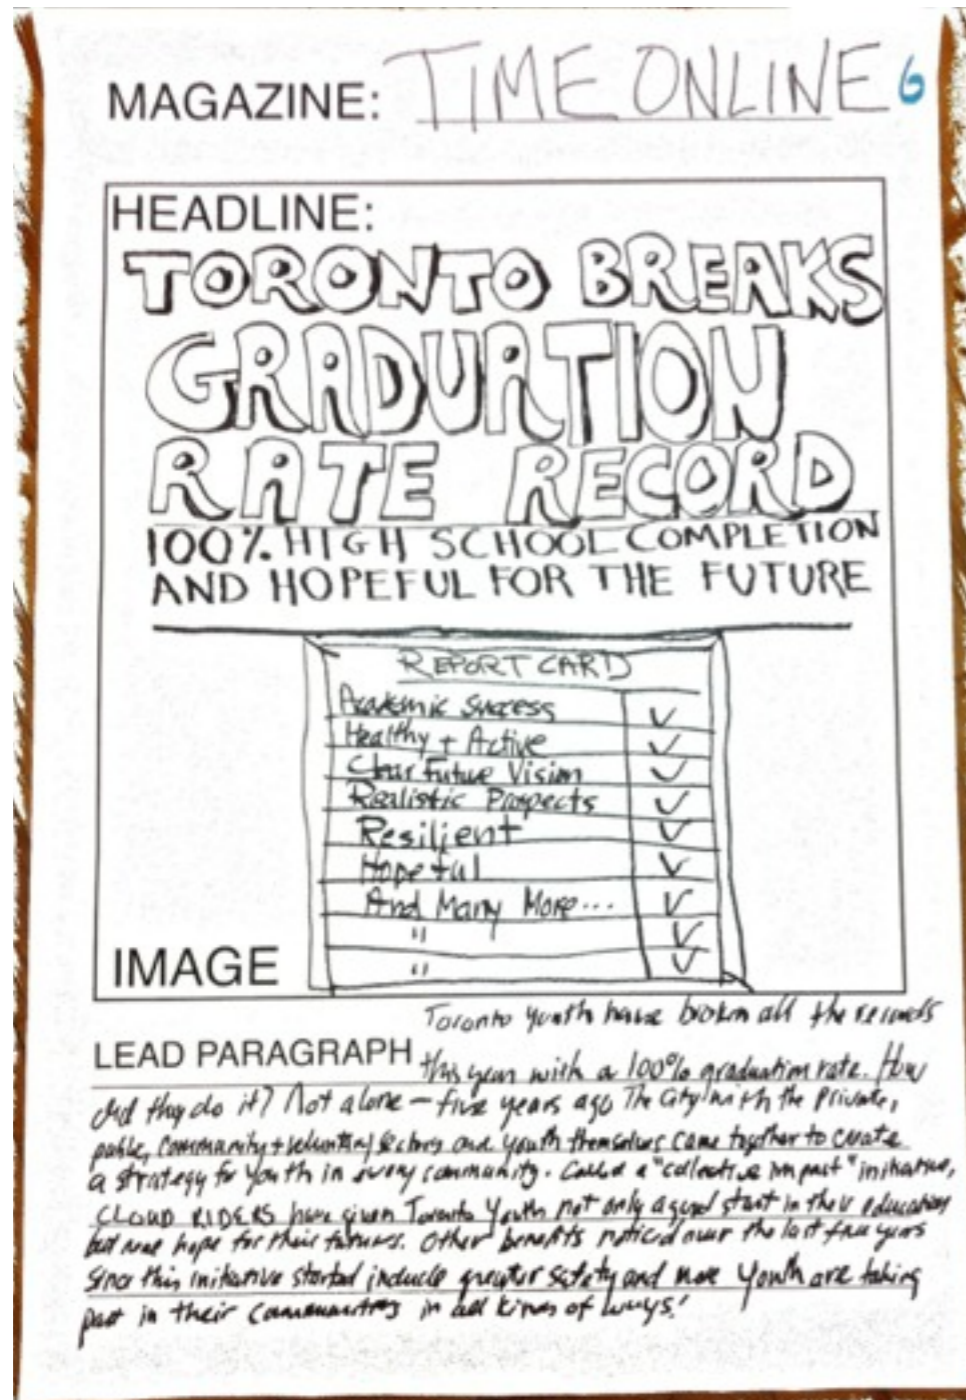 MAGAZINE: TIME ONLINE 6
HEADLINE:
TORONTO BREAKS
GRADUATION
RATE RECORD
100% HIGH SCHOOL COMPLETION
AND HOPEFUL FOR THE FUTURE
REPORT CARD
Academic Success ✓
Healthy + Active ✓
Clear Future Vision ✓
Realistic Prospects ✓
Resilient ✓
Hopeful ✓
And Many More... ✓
" ✓
" ✓
IMAGE
Toronto youth have broken all the records
LEAD PARAGRAPH this year with a 100% graduation rate. How
did they do it? Not alone — five years ago The City with the private,
public, community + voluntary sectors and youth themselves came together to create
a strategy for youth in every community. Called a "collective impact" initiative,
CLOUD RIDERS have given Toronto Youth not only a good start in their education
but more hope for their futures. Other benefits noticed over the last five years
since this initiative started include greater safety and more youth are taking
part in their communities in all kinds of ways!